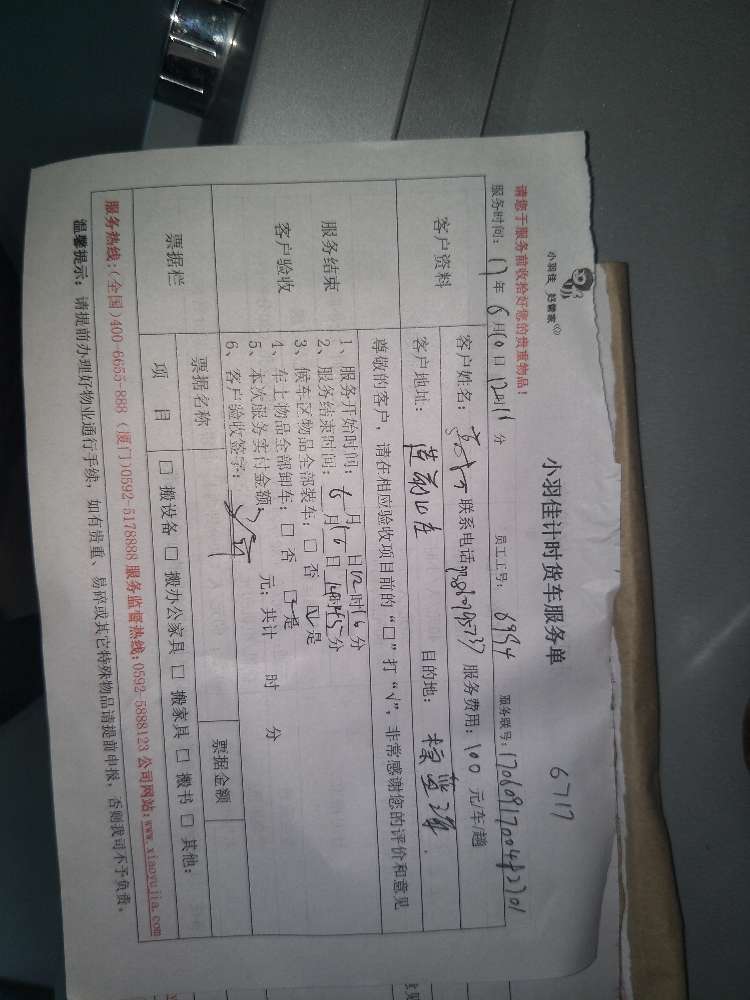 小羽佳 好管家
小羽佳计时货车服务单 6717
请您于服务前收拾好您的贵重物品！
服务时间：17年6月10日12时16分 员工工号：6994 服务联号：
客户资料
客户姓名： 联系电话 服务费用：100元/车/趟
客户地址： 目的地：
服务结束
客户验收
尊敬的客户，请在相应验收项目前的“□”打“√”，非常感谢您的评价和意见
1、服务开始时间：6月10日12时16分
2、服务结束时间：6月10日14时45分
3、候车区物品全部装车：□否 ☑是
4、车上物品全部卸车：□否 ☑是
5、本次服务实付金额： 元；共计 时 分
6、客户验收签字：
票据栏
票据名称 票据金额
项 目 □搬设备 □搬办公家具 □搬家具 □搬书 □其他：
服务热线：(全国)400-6655-888 (厦门)0592-5178888 服务监督热线：0592-5888123 公司网站：www.xiaoyujia.com
温馨提示：请提前办理好物业通行手续，如有贵重、易碎或其它特殊物品请提前申报，否则我司不予负责。